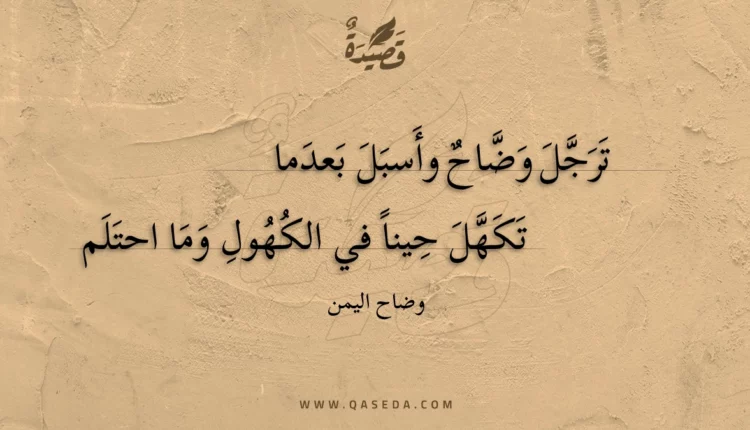 قَصِيدَةٌ
تَرَجَّلَ وَضَّاحٌ وأَسبَلَ بَعدَما
تَكَهَّلَ حِيناً في الكُهُولِ وَمَا احتَلَم
وضاح اليمن
WWW.QASEDA.COM